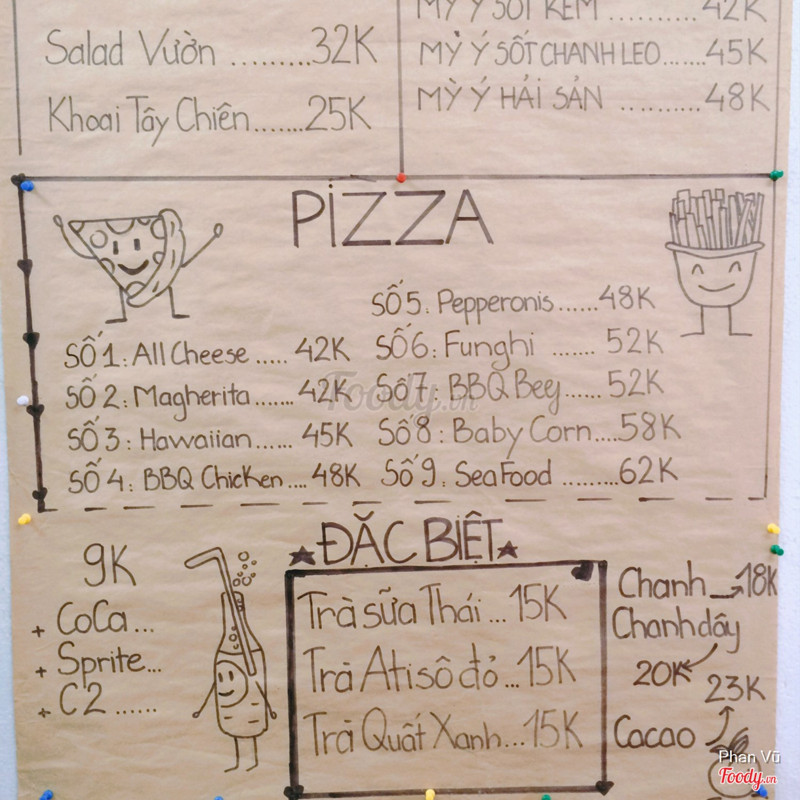 Salad Vườn .........32K
Khoai Tây Chiên.......25K
MỲ Ý SỐT KEM ..........42K
MỲ Ý SỐT CHANH LEO.......45K
MỲ Ý HẢI SẢN ..........48K
PIZZA
SỐ 1: All Cheese ..... 42K
SỐ 2: Magherita.......42K
SỐ 3: Hawaiian...... 45K
SỐ 4: BBQ Chicken .... 48K
SỐ 5: Pepperonis......48K
SỐ 6: Funghi ....... 52K
Số 7: BBQ Bey...... 52K
Số 8: Baby Corn....58K
Số 9: Sea Food .........62K
9K
+ CoCa...
+ Sprite...
+ C2 ......
★ĐẶC BIỆT★
Trà sữa Thái ... 15K
Trà Atisô đỏ ...15K
Trà Quất Xanh...15K
Chanh 18K
Chanh dây
20K
23K
Cacao
Foody.vn
Phan Vũ
Foody.vn